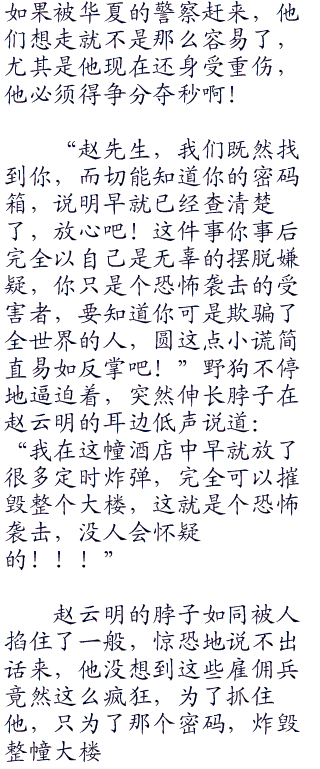 如果被华夏的警察赶来，他
们想走就不是那么容易了，
尤其是他现在还身受重伤，
他必须得争分夺秒啊！
“赵先生，我们既然找
到你，而切能知道你的密码
箱，说明早就已经查清楚
了，放心吧！这件事你事后
完全以自己是无辜的摆脱嫌
疑，你只是个恐怖袭击的受
害者，要知道你可是欺骗了
全世界的人，圆这点小谎简
直易如反掌吧！”野狗不停
地逼迫着，突然伸长脖子在
赵云明的耳边低声说道：
“我在这幢酒店中早就放了
很多定时炸弹，完全可以摧
毁整个大楼，这就是个恐怖
袭击，没人会怀疑
的！！！”
赵云明的脖子如同被人
掐住了一般，惊恐地说不出
话来，他没想到这些雇佣兵
竟然这么疯狂，为了抓住
他，只为了那个密码，炸毁
整幢大楼